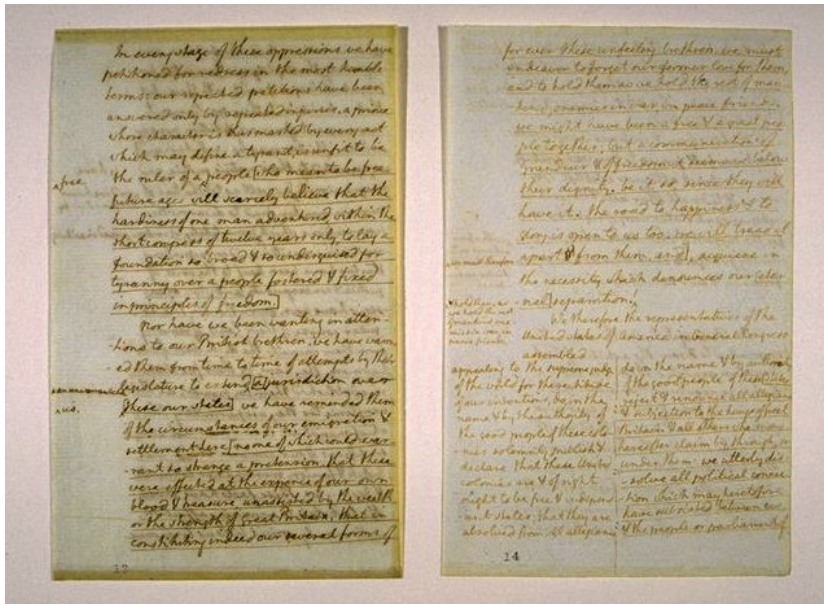 In every stage of these oppressions we have
petitioned for redress in the most humble
terms: our repeated petitions have been
answered only by repeated injuries. a prince
whose character is thus marked by every act
which may define a tyrant, is unfit to be
a free
the ruler of a people [who mean to be free.
future ages will scarcely believe that the
hardiness of one man adventured within the
short compass of twelve years only to lay a
foundation so broad & so undisguised for
tyranny over a people fostered & fixed
in principles of freedom.]
Nor have we been wanting in atten-
-tions to our British brethren. we have warn-
-ed them from time to time of attempts by their
legislature to extend [a] jurisdiction over
us.
[these our states] we have reminded them
of the circumstances of our emigration &
settlement here, [no one of which could war-
-rant so strange a pretension: that these
were effected at the expence of our own
blood & treasure, unassisted by the wealth
or the strength of Great Britain: that in
constituting indeed our several forms of
for ever these unfeeling brethren. we must
endeavor to forget our former love for them,
and to hold them as we hold the rest of man-
kind, enemies in war, in peace friends.
we might have been a free & a great peo-
ple together; but a communication of
grandeur & of freedom it seems is below
their dignity. be it so, since they will
have it. the road to happiness & to
glory is open to us too. we will tread it
we must therefore
apart from them, and] acquiesce in
the necessity which denounces our [eter-
-nal] separation
& hold them as
we hold the rest
of mankind, ene-
mies in war, in
peace friends.
We therefore the representatives of the
United states of America in General Congress
assembled
appealing to the supreme judge
of the world for the rectitude
of our intentions, do in the
name, & by the authority of
the good people of these colo-
-nies, solemnly publish &
declare that these United
colonies are & of right
ought to be free & independ-
-ent states; that they are
absolved from all allegiance
do in the name & by
of the good people of these [states
reject & renounce all allegiance
& subjection to the kings of Great
Britain & all others who may
hereafter claim by, through, or
under them: we utterly dis-
-solve all political connec-
-tion which may heretofore
have subsisted between us
& the people or parliament of
14